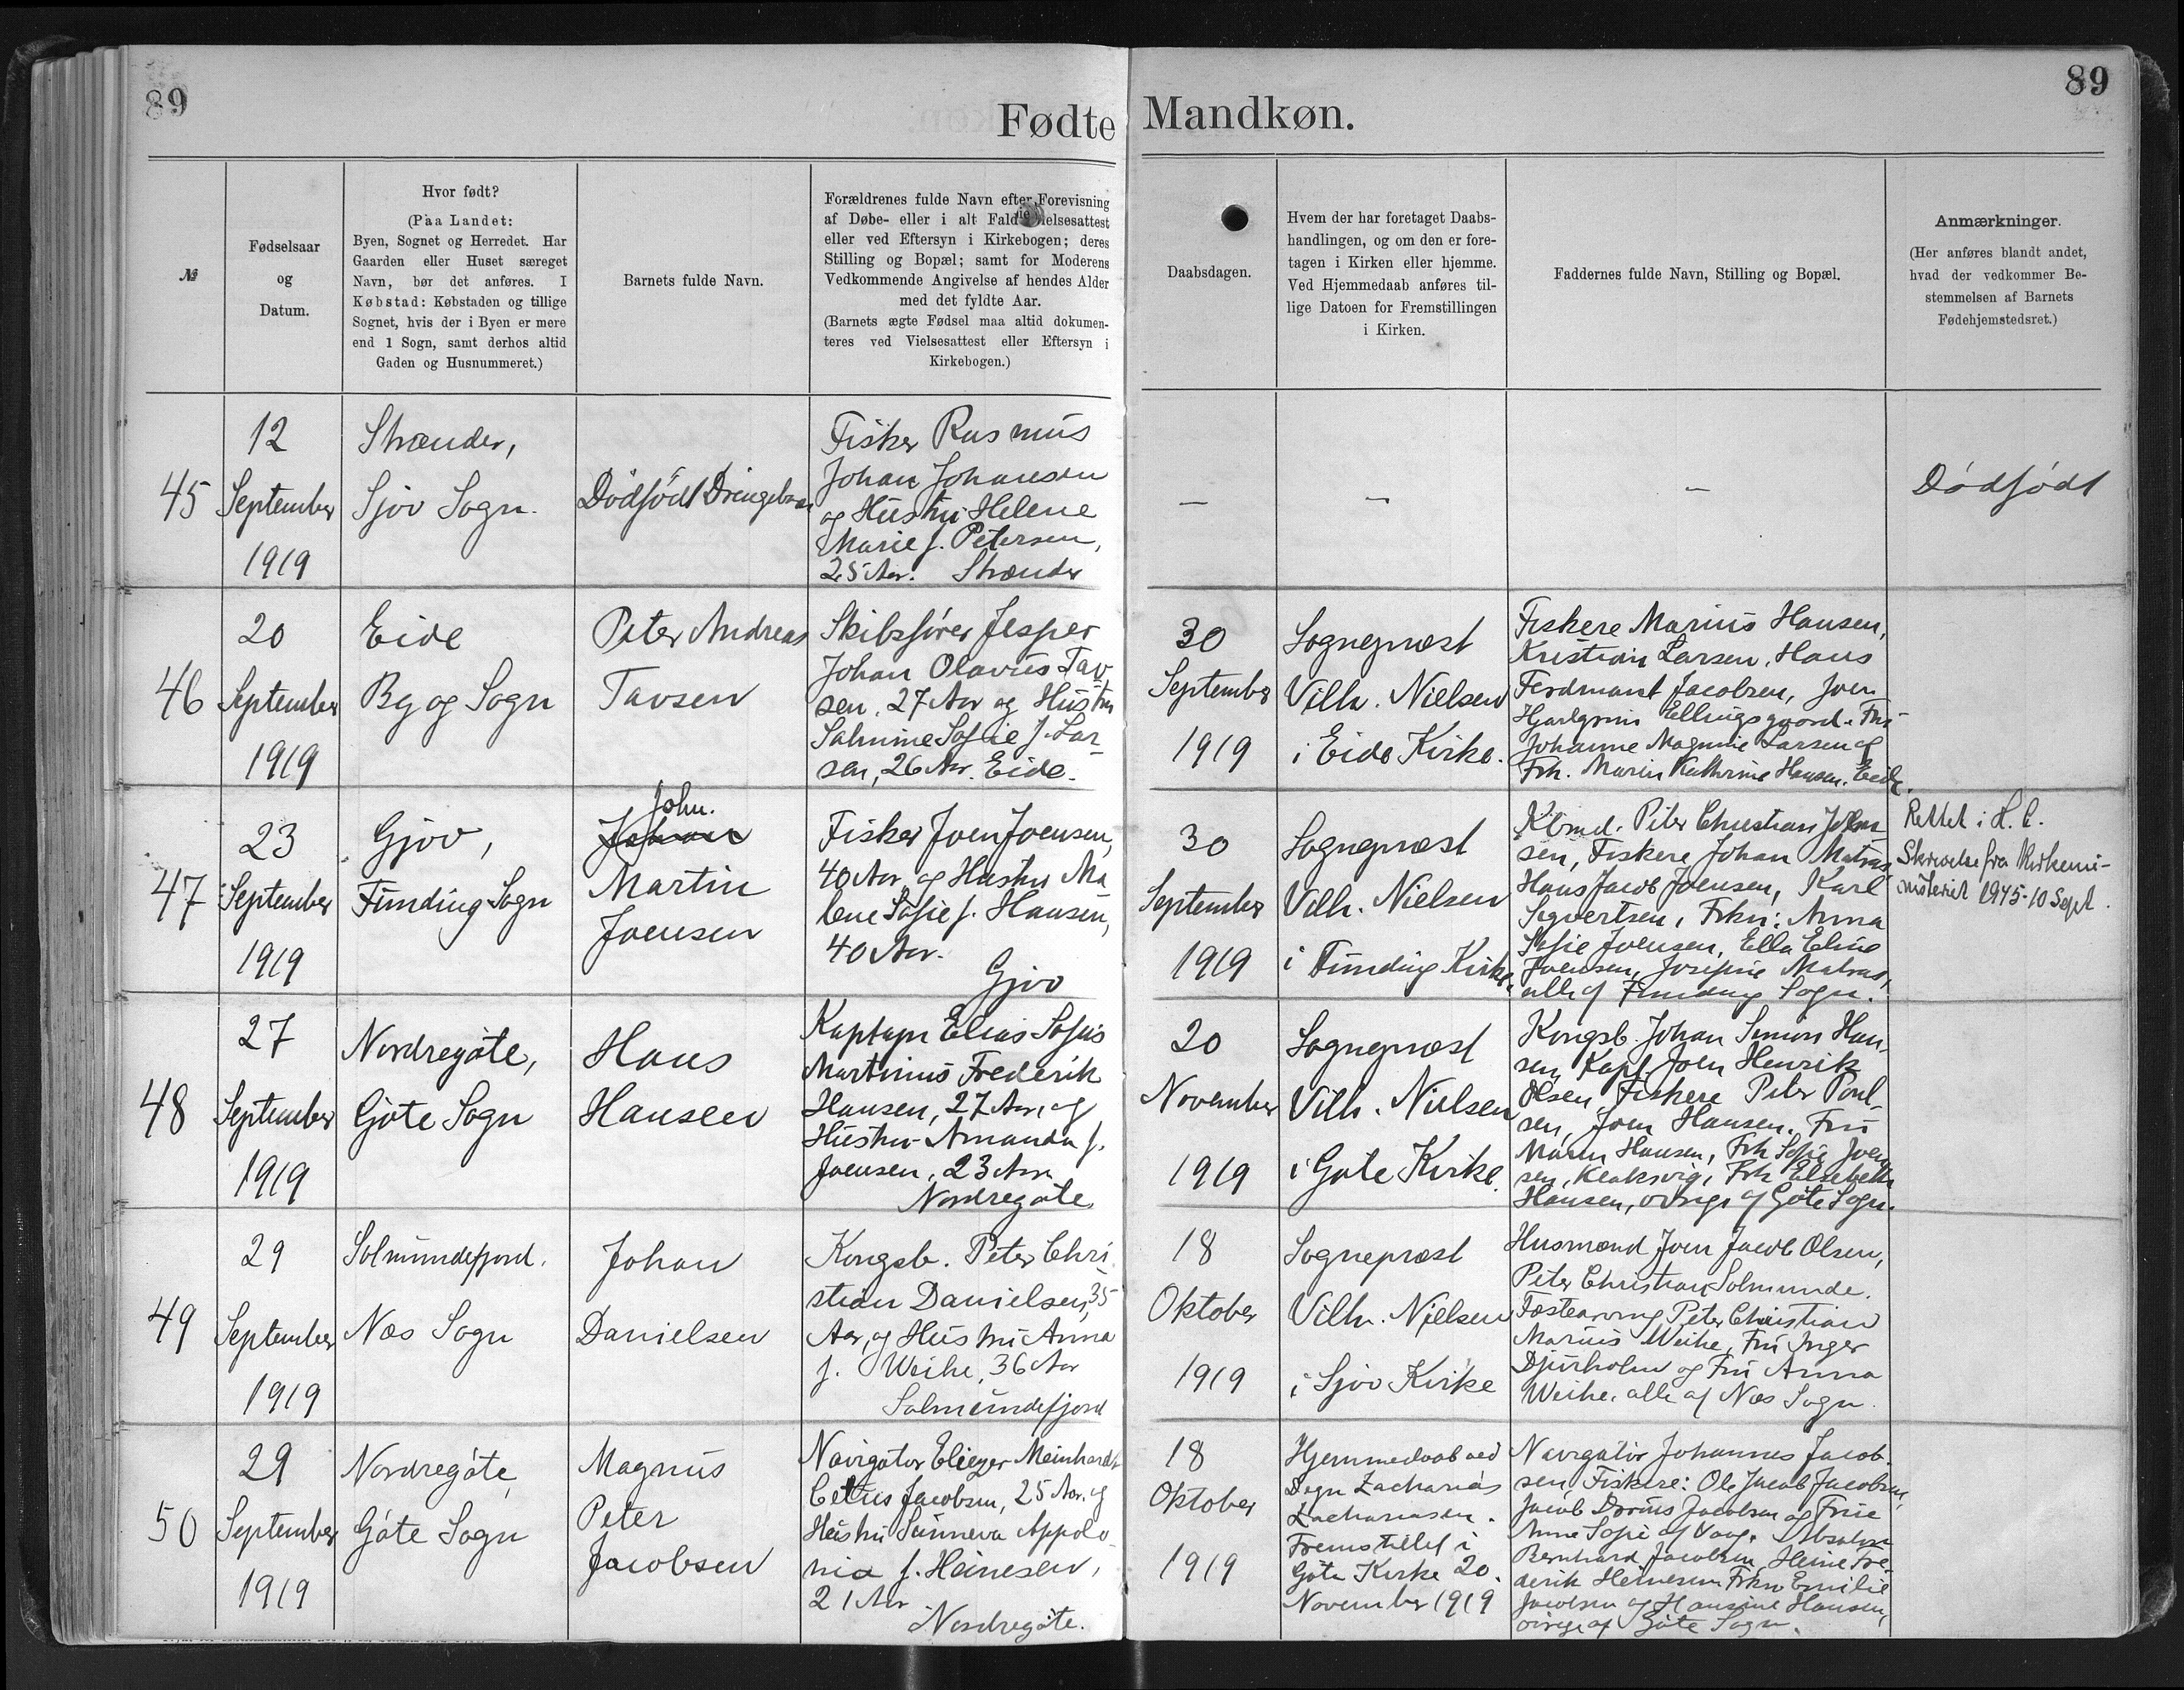 89
Fødte
Mandkøn.
89
№
Fødselsaar
og
Datum.
Hvor født?
(Paa Landet:
Byen, Sognet og Herredet. Har
Gaarden eller Huset særeget
Navn, bør det anføres. I
Købstad: Købstaden og tillige
Sognet, hvis der i Byen er mere
end 1 Sogn, samt derhos altid
Gaden og Husnummeret.)
Barnets fulde Navn.
Forældrenes fulde Navn efter Forevisning
af Døbe- eller i alt Fald Vielsesattest
eller ved Eftersyn i Kirkebogen; deres
Stilling og Bopæl; samt for Moderens
Vedkommende Angivelse af hendes Alder
med det fyldte Aar.
(Barnets ægte Fødsel maa altid dokumen-
teres ved Vielsesattest eller Eftersyn i
Kirkebogen.)
Daabsdagen.
Hvem der har foretaget Daabs-
handlingen, og om den er fore-
tagen i Kirken eller hjemme.
Ved Hjemmedaab anføres til-
lige Datoen for Fremstillingen
i Kirken.
Faddernes fulde Navn, Stilling og Bopæl.
Anmærkninger.
(Her anføres blandt andet,
hvad der vedkommer Be-
stemmelsen af Barnets
Fødehjemstedsret.)
45
12
September
1919
Strænder,
Sjov Sogn.
Dödfödt Drengebarn
Fisker Rasmus
Johan Johansen
og Hustru Helene
Marie f. Petersen,
25 Aar. Strænder
–
–
–
Dødfødt
46
20
September
1919
Eide
By og Sogn
Peter Andreas
Tavsen
Skibsfører Jesper
Johan Olavus Tav
sen, 27 Aar og Hustru
Salmine Sofie f. Lar-
sen, 26 Aar. Eide.
30
September
1919
Sognepræst
Vilh. Nielsen
i Eide Kirke.
Fiskere Marius Hansen,
Kristian Larsen, Hans
Ferdinant Jacobsen, Joen
Hjarlgrim Ellingsgaard. Fru
Johanne Magnine Larsen og
Frk. Marin Kathrine Hansen. Eide.
47
23
September
1919
Gjov,
Funding Sogn
John.
Johan
Martin
Joensen
Fisker Joen Joensen,
40 Aar og Hustru Ma
lene Sofie f. Hansen,
40 Aar.
Gjov
30
September
1919
Sognepræst
Vilh. Nielsen
i Funding Kirke.
Kbmd. Peter Christian Joen
sen, Fiskere Johan Matras
Hans Jacob Joensen, Karl
Sigvertsen, Frkn: Anna
Sofie Joensen, Ella Eline
Joensen, Josefine Matras,
alle af Funding Sogn.
Rettet i H. t.
Skrivelse fra Kirkemi-
nisteriet 1945-10 Sept.
48
27
September
1919
Nordregöte,
Göte Sogn
Hans
Hansen
Kaptajn Elias Sofus
Martinus Frederik
Hansen, 27 Aar, og
Hustru Amanda f.
Joensen, 23 Aar
Nordregöte
20
November
1919
Sognepræst
Vilh. Nielsen
i Göte Kirke.
Kongsb. Johan Simon Han-
sen, Kapt. Joen Henrik
Olsen, Fiskere Peter Poul-
sen, Joen Hansen. Fru
Maren Hansen, Frk Sofie Joen
sen, Klaksvig, Frk Elsebeth
Hansen, övrige af Göte Sogn.
49
29
September
1919
Solmundefjord.
Næs Sogn
Johan
Danielsen
Kongsb. Peter Chri-
stian Danielsen, 35
Aar, og Hustru Anna
f. Weihe, 36 Aar
Solmundefjord
18
Oktober
1919
Sognepræst
Vilh. Nielsen
i Sjov Kirke
Husmænd Joen Jacob Olsen,
Peter Christian Solmunde.
Fæstearving Peter Christian
Marius Weihe, Fru Inger
Djurholm og Fru Anna
Weihe, alle af Næs Sogn.
50
29
September
1919
Nordregöte,
Göte Sogn
Magnus
Peter
Jacobsen
Navigatör Eliezer Meinhardt
Jacobsen, 25 Aar, og
Hustru Sunneva Appolo-
nia f. Heinesen,
21 Aar
Nordregöte.
18
Oktober
1919
Hjemmedaab ved
Degn Zacharias
Zachariasen.
Fremstillet i
Göte Kirke 20.
November 1919
Navigatör Johannes Jacob-
sen, Fiskere: Ole Jacob Jacobsen,
Jacob Jacobsen og Frue
Anne Sofie af Vaag. Absalon
Bernhard Jacobsen, Heine Fre-
derik Heinesen, Frkn Emilie
Jacobsen og Hansine Hansen,
övrige af Göte Sogn.